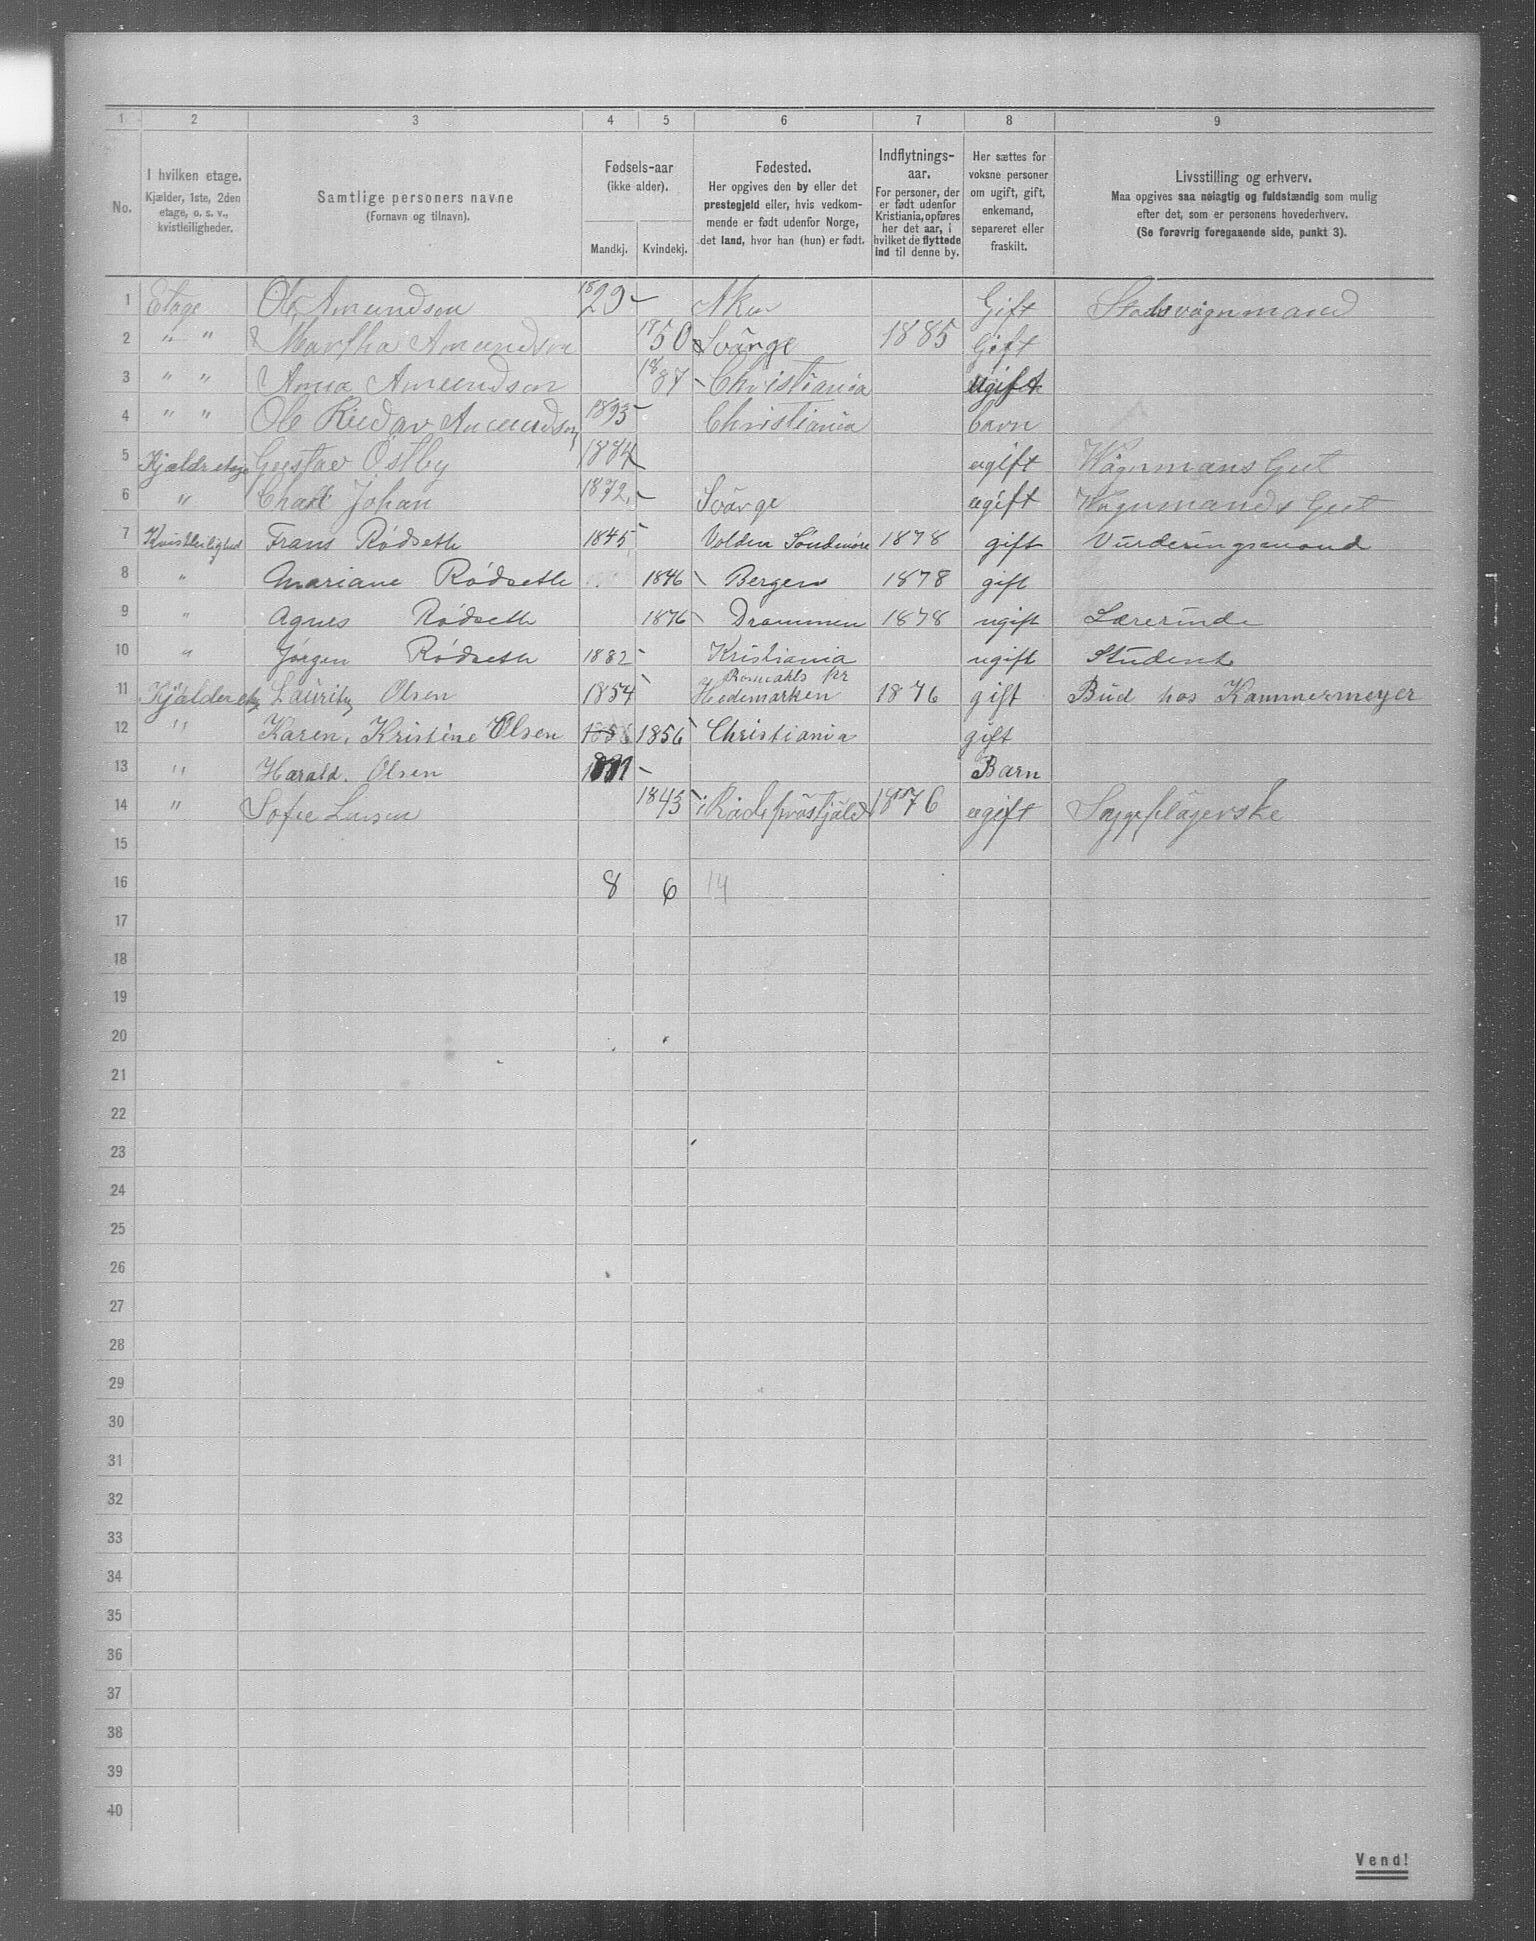 1 2 3 4 5 6 7 8 9
No.
I hvilken etage.
Kjælder, 1ste, 2den
etage, o. s. v.,
kvistleiligheder.
Samtlige personers navne
(Fornavn og tilnavn).
Fødsels-aar
(ikke alder).
Mandkj. Kvindekj.
Fødested.
Her opgives den by eller det
prestegjeld eller, hvis vedkom-
mende er født udenfor Norge,
det land, hvor han (hun) er født.
Indflytnings-
aar.
For personer, der
er født udenfor
Kristiania, opføres
her det aar, i
hvilket de flyttede
ind til denne by.
Her sættes for
voksne personer
om ugift, gift,
enkemand,
separeret eller
fraskilt.
Livsstilling og erhverv.
Maa opgives saa nøiagtig og fuldstændig som mulig
efter det, som er personens hovederhverv.
(Se forøvrig foregaaende side, punkt 3).
1 Etage Ole Amundson 1829 Aker Gift Stadsvögnmand
2 " " Martha Amundson 1850 Svärge 1885 Gift
3 " " Anna Amundson 1887 Christiania ugift
4 " " Ole Amundson 1893 Christiania barn
5 Kjældretage Gustav Östby 1884 ugift Wögnmans Gut
6 " Johan 1872 Svärge ugift Wögnmands Gut
7 Kvistleilighed Frans Rødseth 1845 Volden Söndmöre 1878 gift Vurderingsmand
8 " Mariane Rødseth 1846 Bergen 1878 gift
9 " Agnes Rødseth 1876 Drammen 1878 ugift Lærerinde
10 " Jørgen Rødseth 1882 Kristiania ugift Student
11 Kjælderetg Lauritz Olsen 1854 pr
Hedemarken 1876 gift Bud hos Kammermeyer
12 " Karen Kristine Olsen 1856 Christiania gift
13 " Harald Olsen Barn
14 " Sofie Larsen 1843 i Råde prästjäld 1876 ugift Sygeplägerske
15
16 8 6 14
17
18
19
20
21
22
23
24
25
26
27
28
29
30
31
32
33
34
35
36
37
38
39
40
Vend!